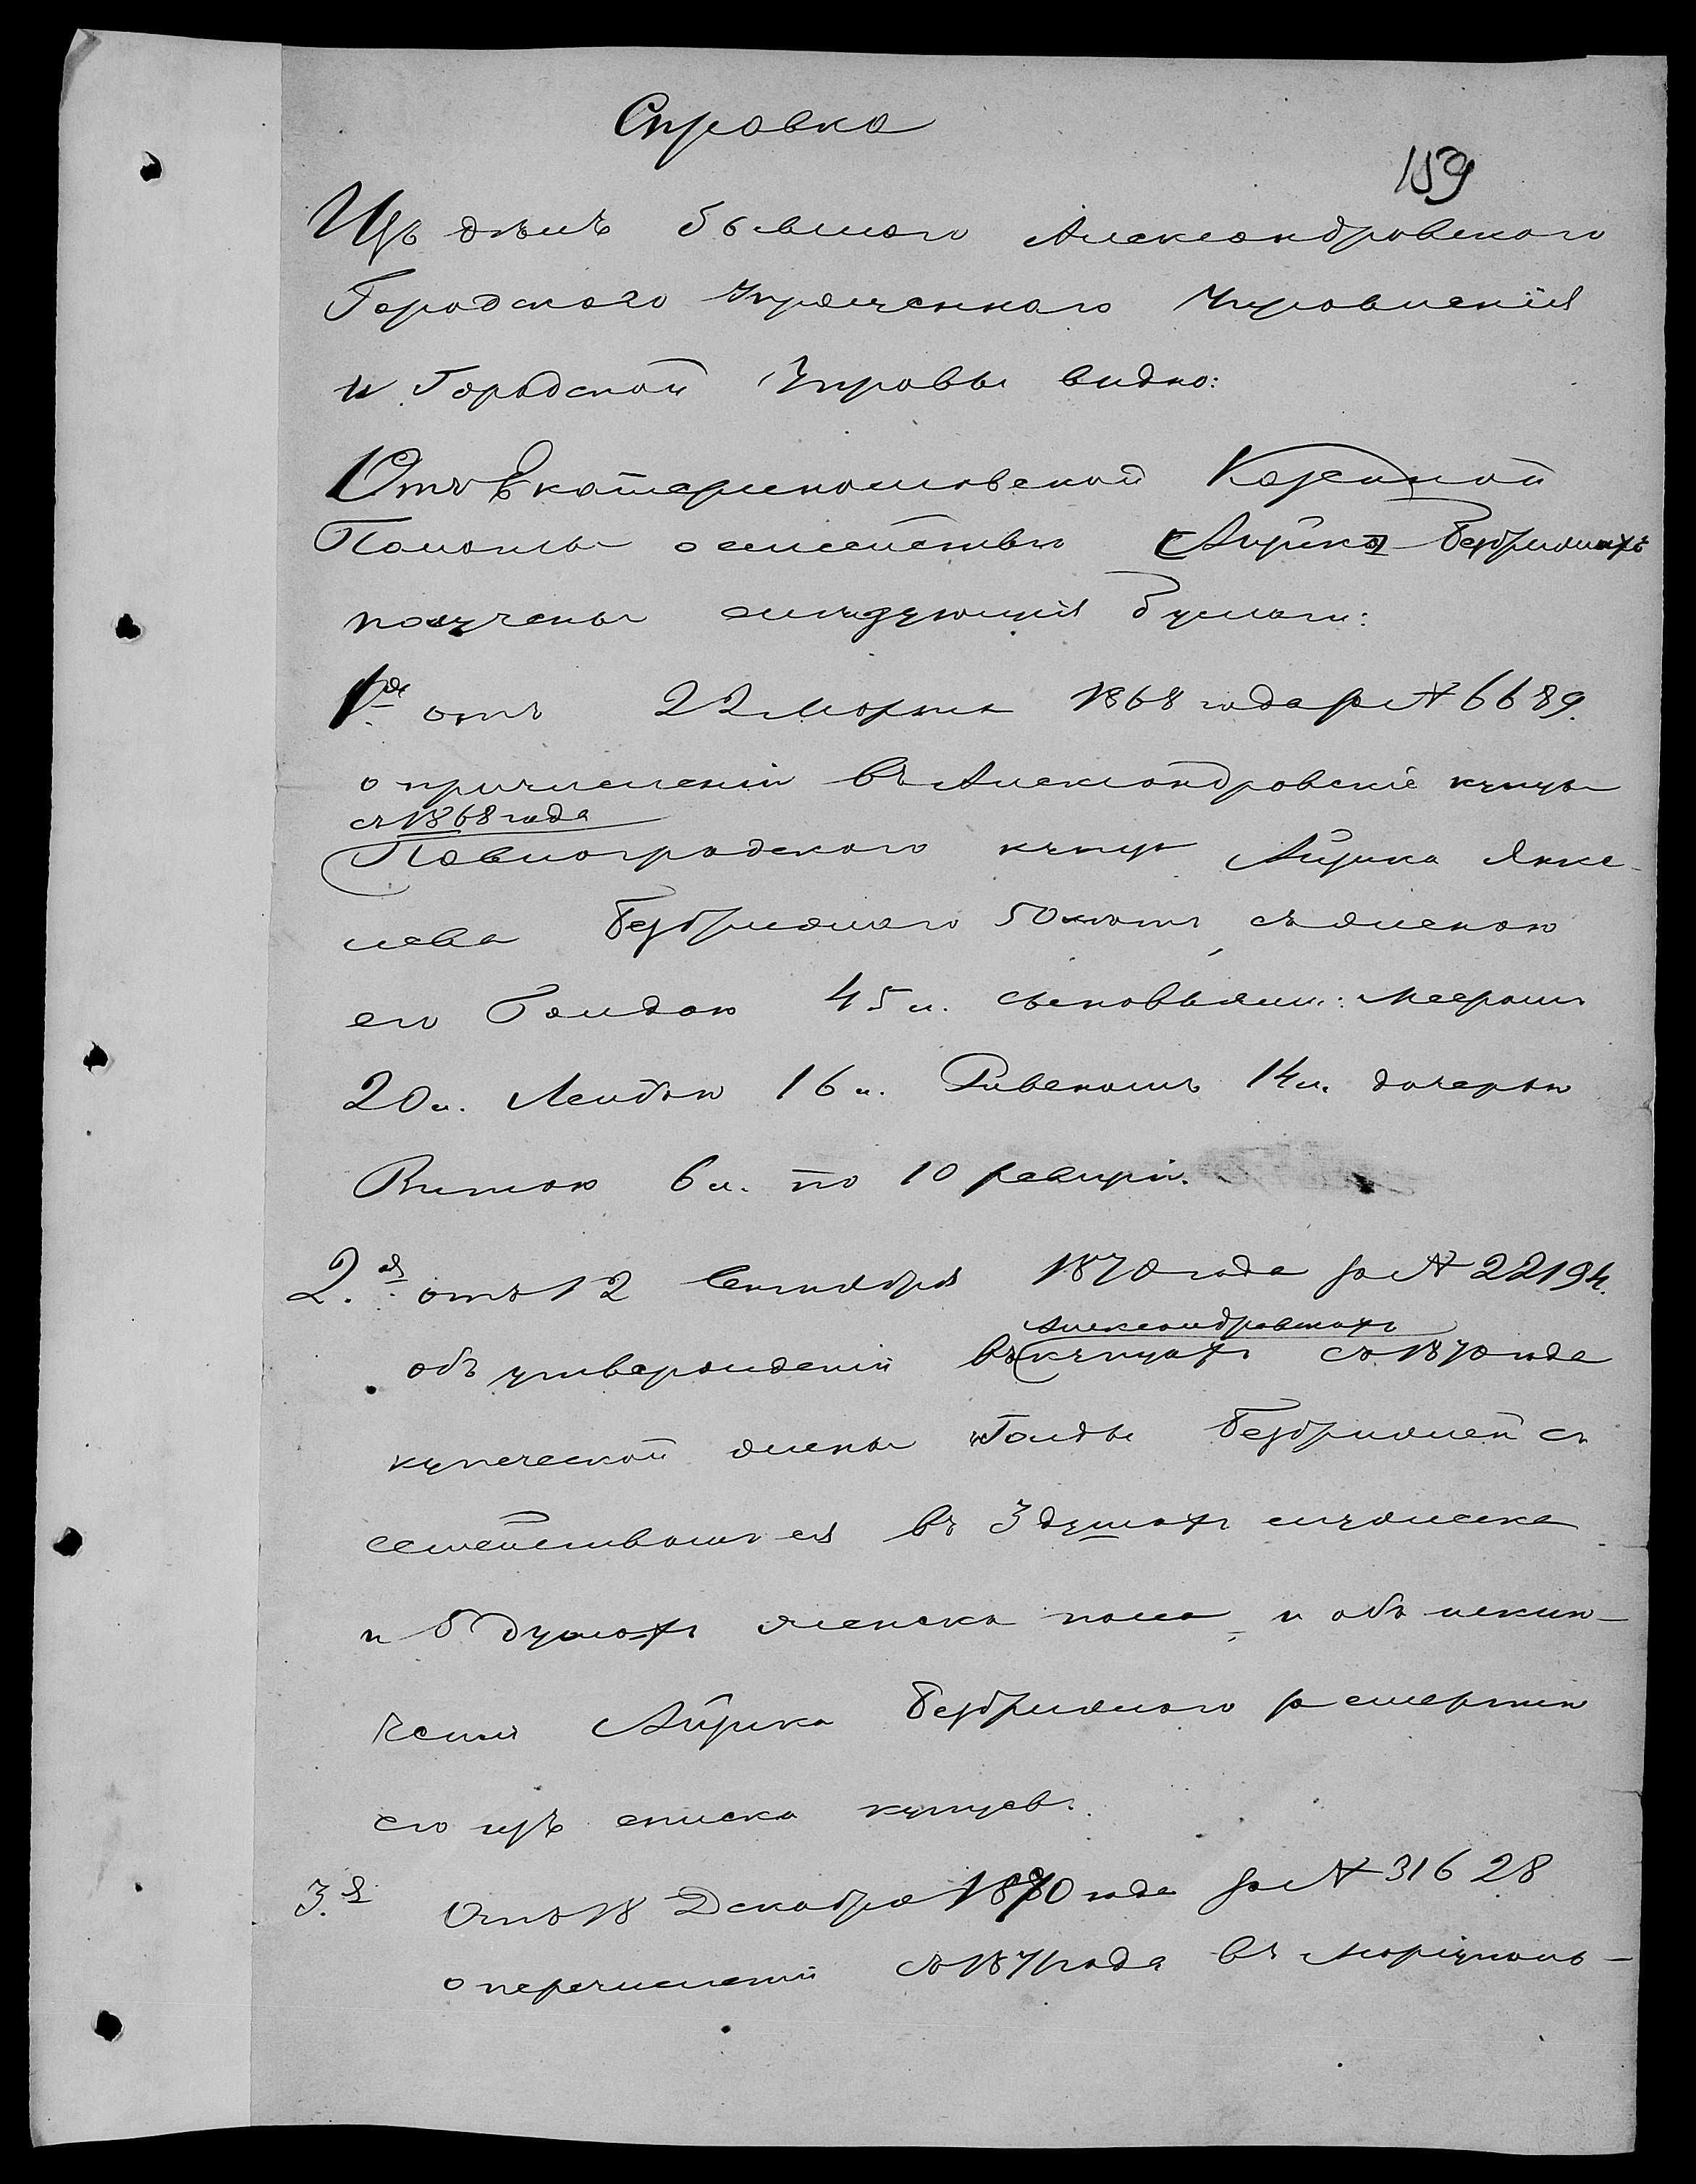 Справка
159
Изъ дѣлъ бывшаго Александровскаго
Городскаго Упрощеннаго Управленія
и Городской Управы видно:
Отъ Екатеринославской Казенной
Палаты о семействѣ Айзика Безбрижныхъ
получены слѣдующія бумаги:
1.я отъ 22 Марта 1868 года за № 6689.
о причисленіи въ Александровскіе купцы
съ 1868 года
Павлоградскаго купца Айзика Янке-
лева Безбрижнаго 50 лѣтъ, съ женою
его Голдою 45 л. сыновьями: Мееромъ
20 л. Лейбою 16 л. Рувеномъ 14 л. дочерью
Ривкою 6 л. по 10 ревизіи.
2.я отъ 12 Сентября 1870 года за № 22194.
Александровскихъ
объ утвержденіи въ купцахъ съ 1870 года
купеческой жены Голды Безбрижней съ
семействомъ ея въ 3 душахъ мужеска
и 5 душахъ женска пола, и объ исклю-
ченіи Айзика Безбрижнаго за смертію
его изъ списка купцовъ.
3.я Отъ 18 Декабря 1870 года за № 31628
о перечисленіи съ 1871 года въ Маріуполь-